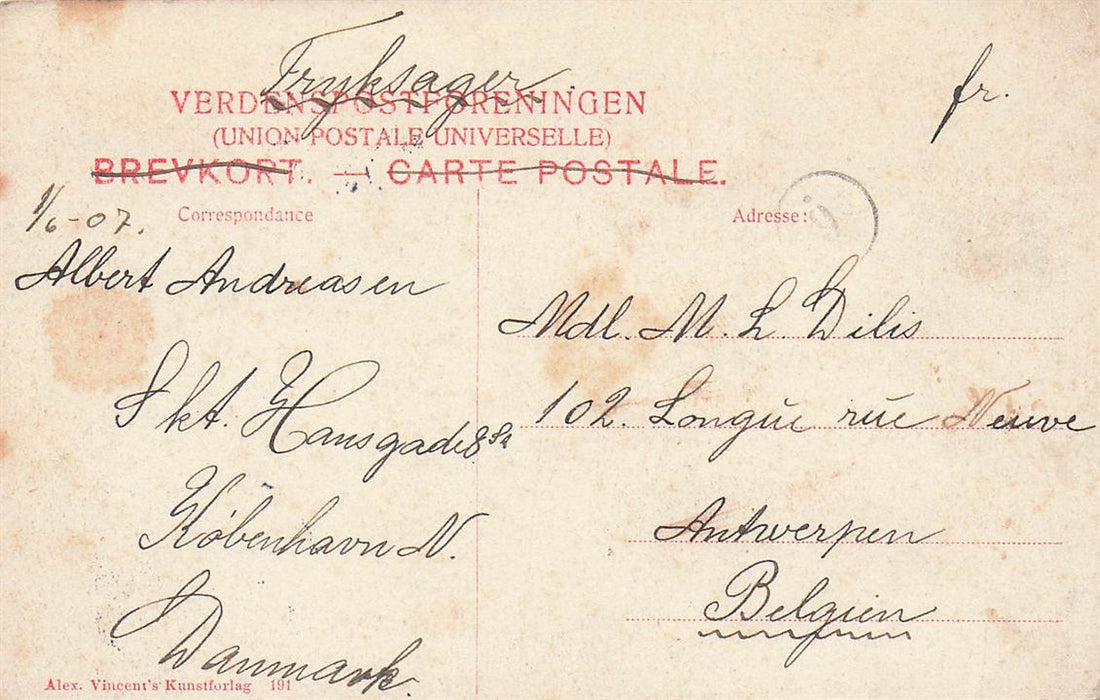 Tryksager.
fr.
VERDENSPOSTFORENINGEN
(UNION POSTALE UNIVERSELLE)
BREVKORT. — CARTE POSTALE.
1/6-07.
Correspondance
Albert Andreasen
Skt. Hansgade 8
København N.
Danmark.
Alex. Vincent's Kunstforlag 191
Adresse:
Mdl. M. L. Dilis
102. Longue rue Neuve
Antwerpen
Belgien